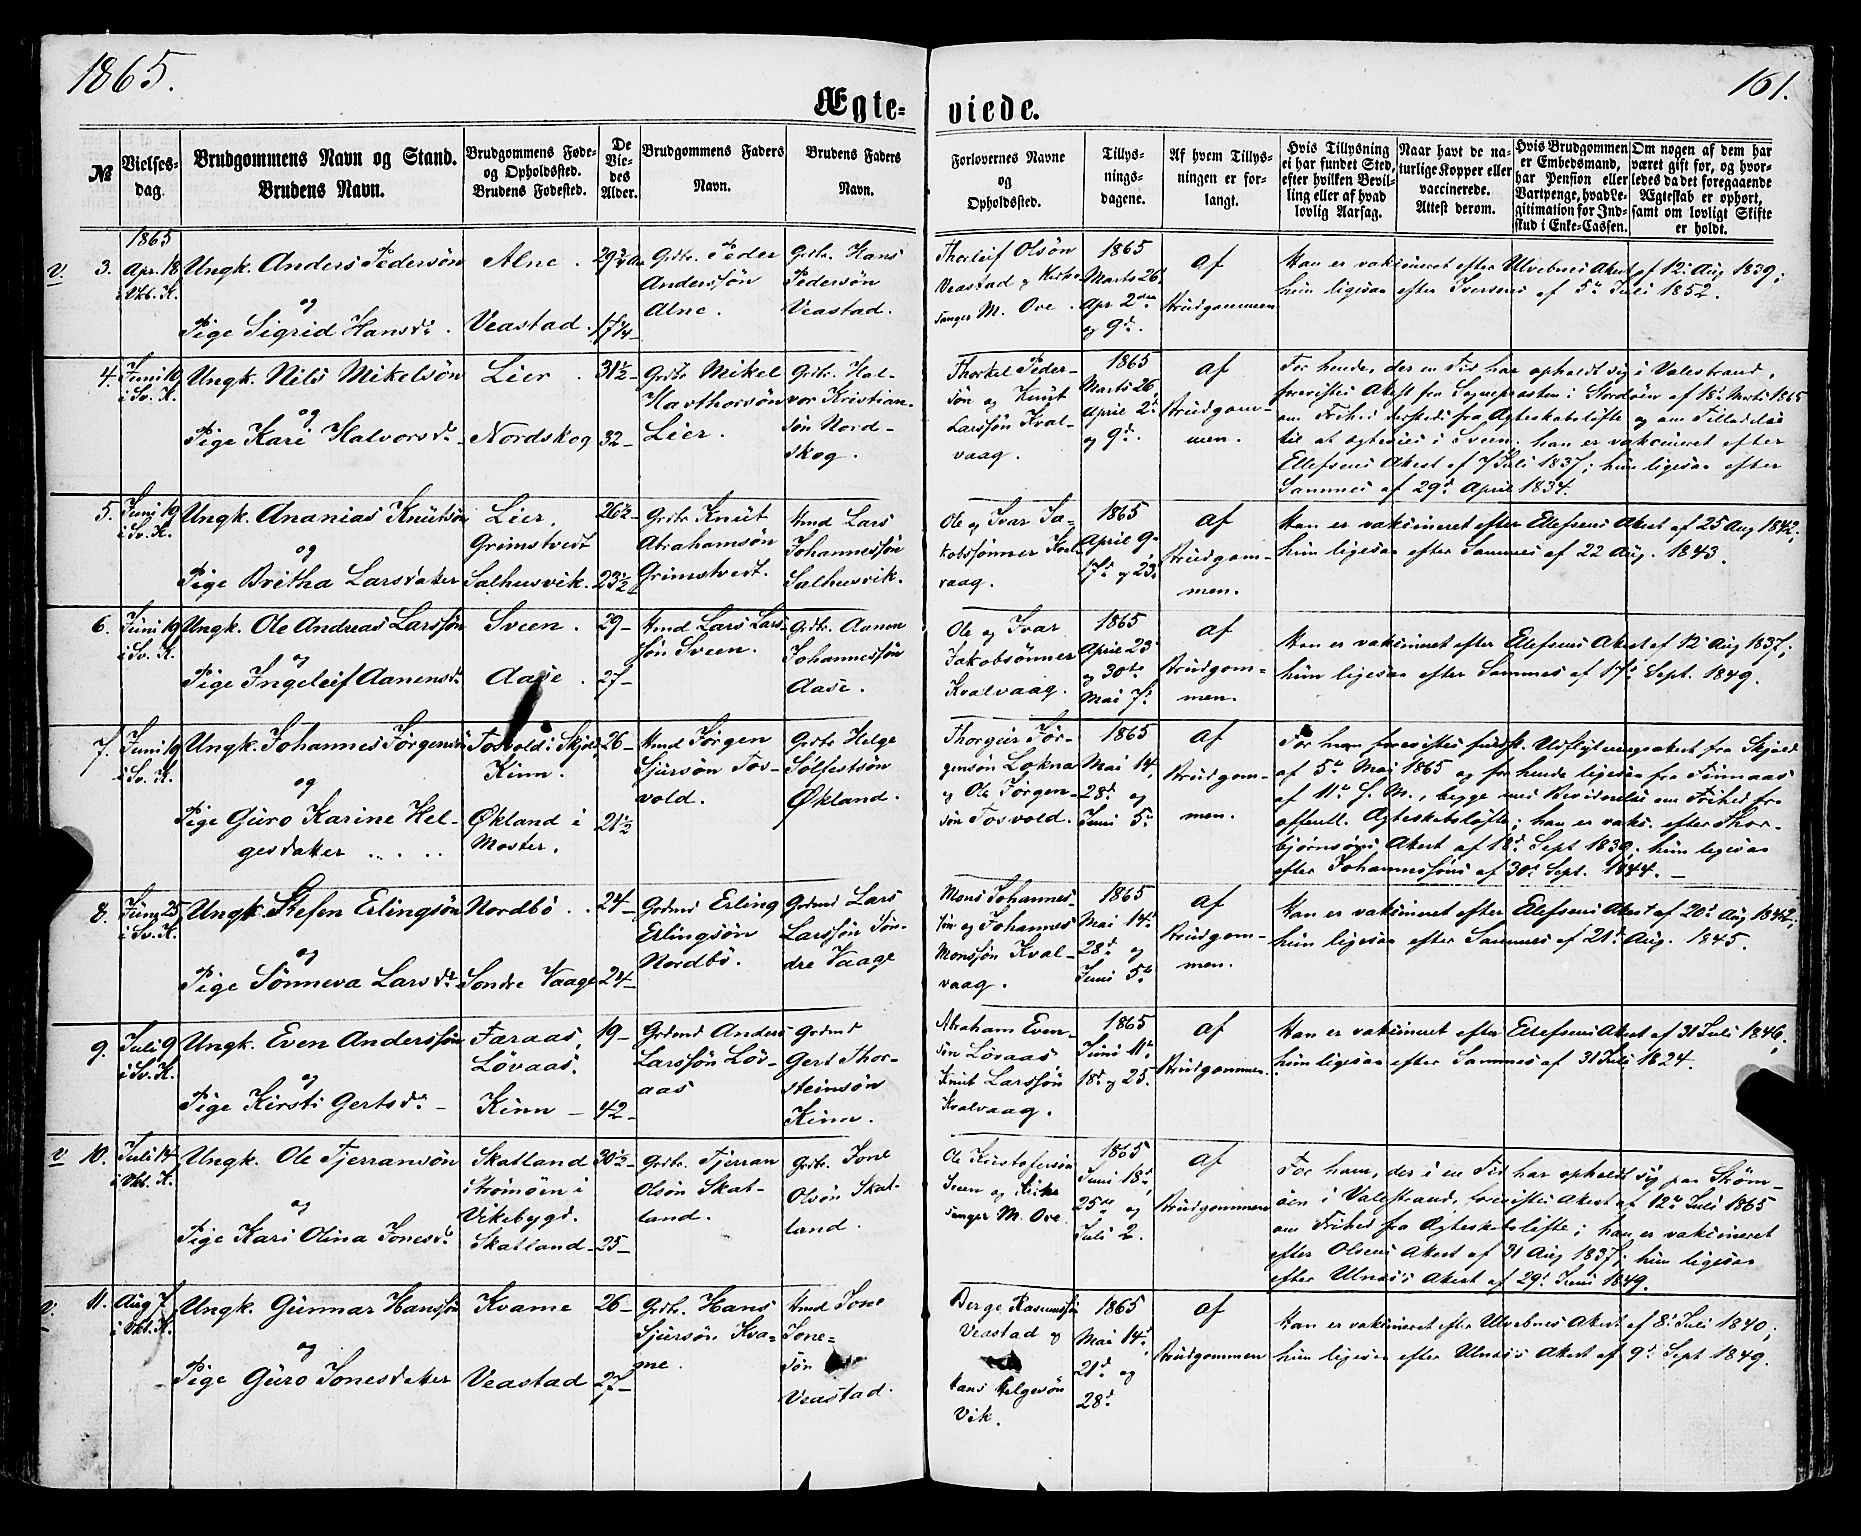 1865.
161.
Ægte-
viede.
№
Vielses-
dag.
Brudgommens Navn og Stand.
Brudens Navn.
Brudgommens Føde-
og Opholdssted.
Brudens Fødested.
De
Vie-
des
Alder.
Brudgommens Faders
Navn.
Brudens Faders
Navn.
Forlovernes Navne
og
Opholdssted.
Tillys-
nings-
dagene.
Af hvem Tillys-
ningen er for-
langt.
Hvis Tillysning
ei har fundet Sted,
efter hvilken Bevil-
ling eller af hvad
lovlig Aarsag.
Naar havt de na-
turlige Kopper eller
vaccinerede.
Attest derom.
Hvis Brudgommen
er Embedsmand,
har Pension eller
Vartpenge, hvad Le-
gitimation for Ind-
skud i Enke-Cassen.
Om nogen af dem har
været gift før, og hvor-
ledes da det foregaaende
Ægteskab er ophørt,
samt om lovligt Skifte
er holdt.
1865
v. 3.
Apr. 18
i Vkb. K.
Ungk. Anders Pedersön
og
Pige Sigrid Hansdr.
Alne.
Veastad.
17 1/4
Grdbr. Peder
Anderssön
Alne.
Grdbr. Hans
Pedersön
Veastad.
Thorleif Olsön
Veastad og Kirke-
sanger M. Ove.
1865
Marts 26
Apr 2den
og 9d.
af
Brudgommen
Han er vakcineret efter Ulvebnes Akest af 12. Aug 1839;
hun ligesaa efter Iversens af 5te Juli 1852.
4.
Juni 19
i Sv. K.
Ungk. Nils Mikelsön
og
Pige Kari Halvorsdr.
Lier.
Nordskog
31 1/2
32
Grdbr Mikel
Havthorsön
Lier.
Grdbr. Hal-
vor Kristian-
sön Nord-
skog.
Thorkel Peder-
sön og Knut
Larssön Kval-
vaag.
1865
Marts 26
April 2d
og 9d.
af
Brudgom-
men.
For hende, der en Tid har opholdt sig i Valestrand,
forevistes Akest fra Sognepræsten i Stordöen af 18. Marts 1865
om Frihed derstedts fra Ægteskabslöfte og om Tilladelse
til at ægtevies i Sveen; han er vakcineret efter
Ellefsens Akest af 7 Juli 1837; hun ligesaa efter
Sammes af 29d April 1834.
5.
Juni 19
i Sv. K.
Ungk. Ananias Knutsön
og
Pige Britha Larsdatter
Lier.
Grimstvedt
Salhusvik.
26 1/2
23 1/2
Grdbr Knut
Abrahamsön
Grimstvedt.
Hmd Lars
Johannessön
Salhusvik.
Ole og Ivar Ja-
kobsönner Kval-
vaag.
1865
April 9
17d og 23d
af
Brudgom-
men.
Han er vakcineret efter Ellefsens Akest af 25 Aug 1842;
hun ligesaa efter Sammes af 22 Aug. 1843.
6.
Juni 19
i Sv. K.
Ungk. Ole Andreas Larssön
og
Pige Ingeleif Aanensdr.
Sveen.
Aase.
29
27
Hmd Lars Lars-
sön Sveen.
Grdbr. Aanen
Johannessön
Aase.
Ole og Ivar
Jakobsönner
Kvalvaag.
1865
April 23
og 30te
Mai 7d.
af
Brudgom-
men.
Han er vakcineret efter Ellefsens Akest af 12 Aug 1837;
hun ligesaa efter Sammes af 17d Sept. 1849.
7.
Juni 19
i Sv. K.
Ungk. Johannes Jörgensön
og
Pige Guro Karine Hel-
gesdatter
Tosvold i Skjold
Kinn.
Økland i
Moster.
26
21 1/2
Hmd Jörgen
Sjursön Tos-
vold.
Grdbr Helge
Sölfestsön
Økland.
Thorgeir Jör-
gensön Lokna
og Ole Jörgen-
sön Tosvold.
1865
Mai 14,
28d og
Juni 5te
af
Brudgom-
men.
For ham forevistes Udflytningsakest fra Skjold
af 5te Mai 1865 og for hende ligesaa fra Finnaas
af 11te s. M., begge med Bevidnelse om Frihed fra
offentl. Ægteskabslöfte; han er vakc. efter Thor-
björnsöns Akest af 18d Sept 1839; hun ligesaa
efter Johannessöns af 30d Sept. 1844.
8.
Juni 25
i Sv. K.
Ungk. Stefen Erlingsön
og
Pige Sönneva Larsdr.
Nordbö.
Söndre Vaage
24
24
Grdmd Erling
Erlingsön
Nordbö.
Grdmd Lars
Larssön Sön-
dre Vaage
Mons Johannes-
sön og Johannes
Monssön Kval-
vaag.
1865
Mai 14d
28d og
Juni 5te
af
Brudgom-
men.
Han er vakcineret efter Ellefsens Akest af 20d Aug 1842;
hun ligesaa efter Sammes af 21d Aug. 1845.
9.
Juli 9
i Sv. K.
Ungk. Even Anderssön
og
Pige Kirsti Gertsdr.
Faraas,
Lövaas.
Kinn
19
42
Grdmd Anders
Larssön Löv-
aas
Grdmd
Gert Thor-
steinsön
Kinn.
Abraham Even-
sön Lövaas
Knut Larssön
Kvalvaag.
1865
Juni 11te
18d og 25.
af
Brudgommen.
Han er vakcineret efter Ellefsens Akest af 31 Juli 1846;
hun ligesaa efter Sammes af 31 Juli 1824.
v 10.
Juli 14
i Vkb. K.
Ungk. Ole Tjerransön
og
Pige Kari Olina Jonesdr.
Skatland
Strömöen i
Vikebygd.
Skatland
30 1/2
25
Grdbr. Tjerran
Olsön Skat-
land.
Grdbr. Jone
Olsön Skat-
land.
Ole Kristofersön
Sveen og Kirke-
sanger M. Ove
1865
Juni 18d,
25de og
Juli 2.
af
Brudgommen
For ham, der i en Tid har opholdt sig paa Ström-
öen i Valestrand, forevistes Akest af 12te Juli 1865
om Frihed fra Ægteskabslöfte; han er vakcineret
efter Olsens Akest af 31 Aug 1837; hun ligesaa
efter Ulnæs's Akest af 29d Juni 1849.
v. 11.
Aug 7
i Vkb. K.
Ungk. Gunnar Hanssön
og
Pige Guro Jonesdatter
Kvame
Veastad
26
27
Grdbr. Hans
Sjursön Kva-
me.
Hmd Jone
Jone-
sön
Veastad.
Berge Rasmussön
Veastad og
Hans Helgesön
Vik.
1865
Mai 14d,
21d og
28d
af
Brudgommen
Han er vakcineret efter Ulvebnes Akest af 8d Juli 1840;
hun ligesaa efter Ulnæs's Akest af 9d Sept 1849.